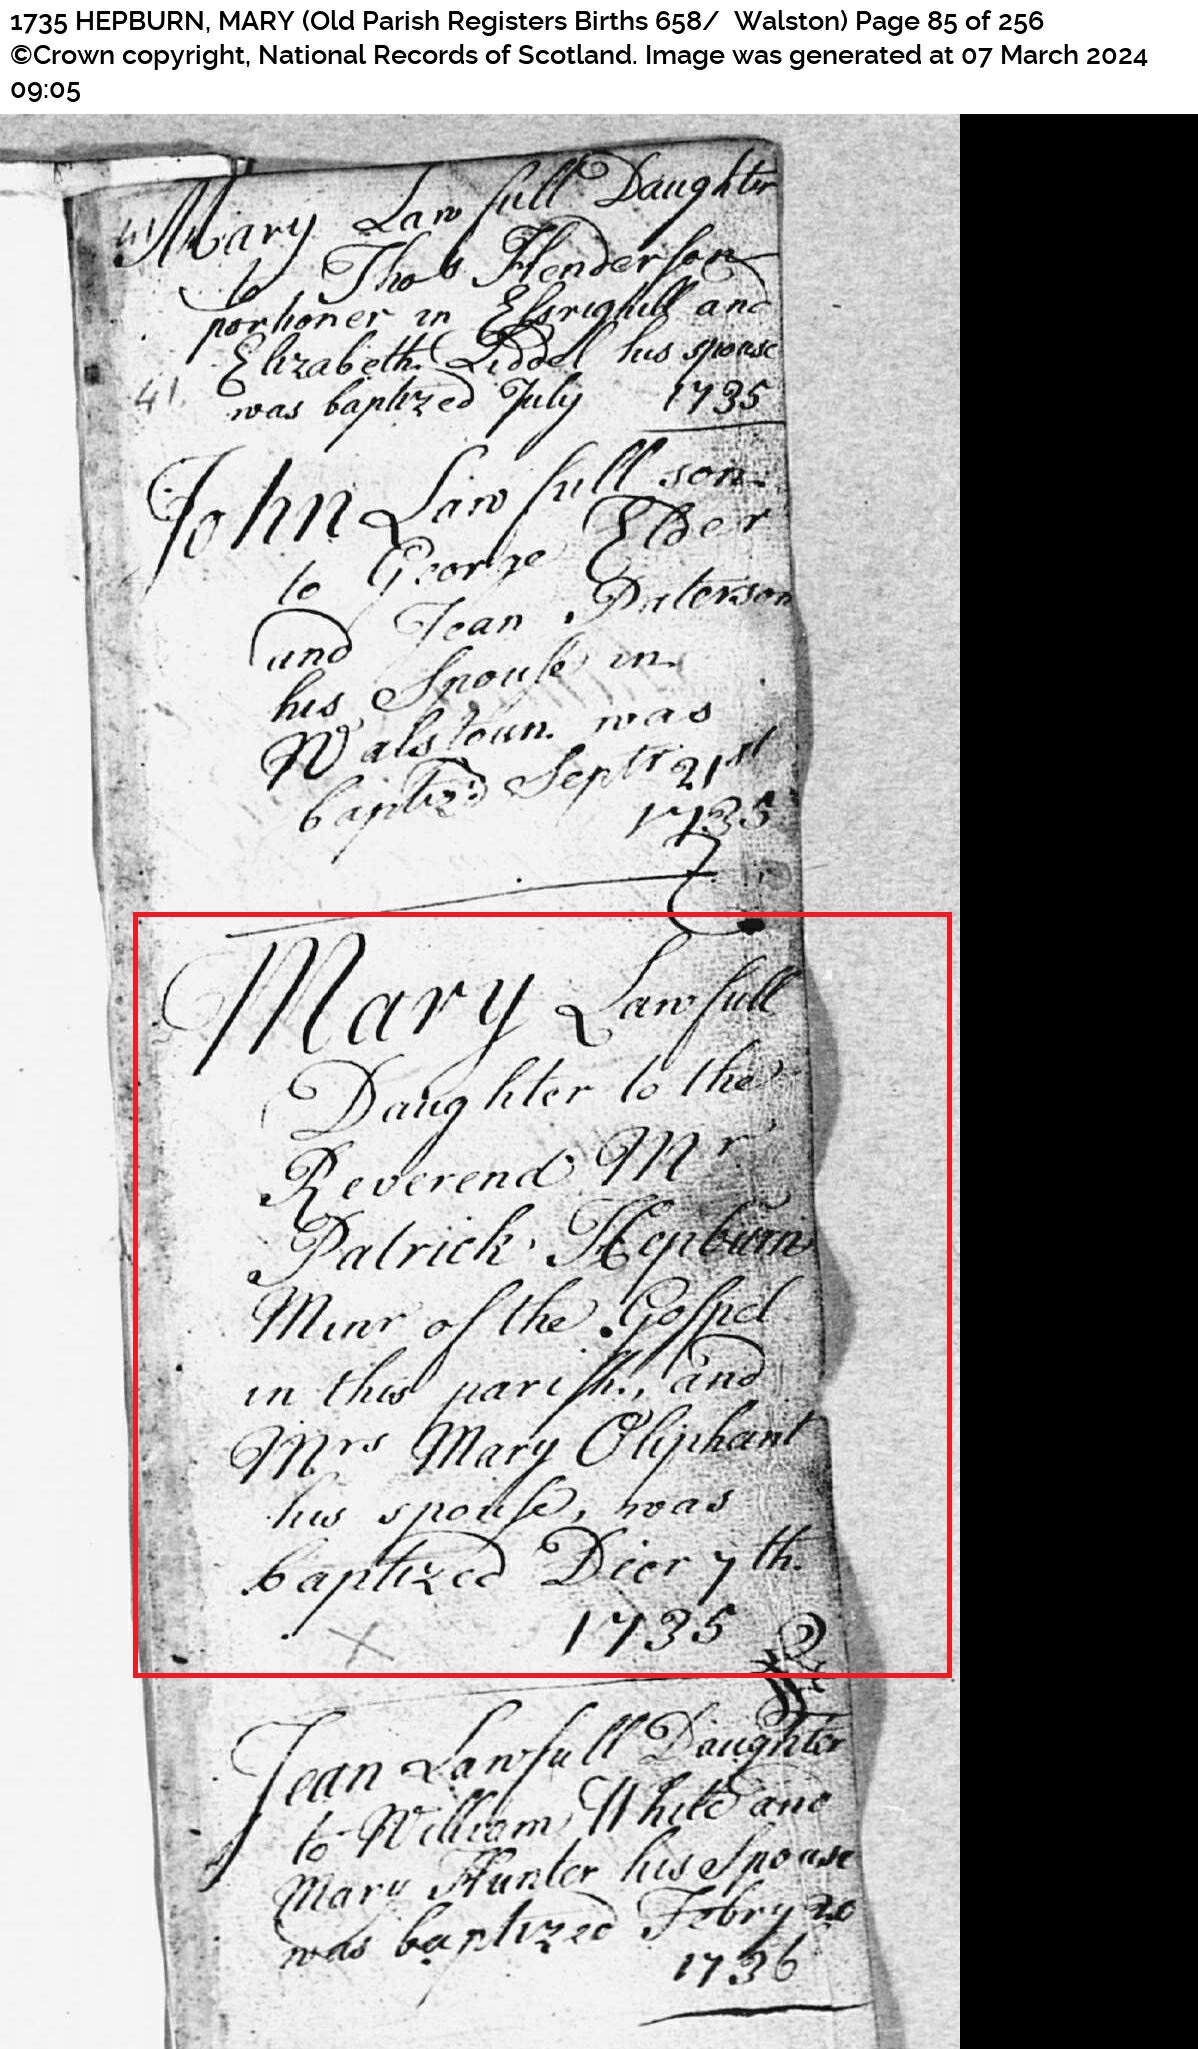 1735 HEPBURN, MARY (Old Parish Registers Births 658/ Walston) Page 85 of 256
©Crown copyright, National Records of Scotland. Image was generated at 07 March 2024
09:05
Mary Lawfull Daughter
to Thos Henderson
portioner in Elsrighill and
Elizabeth Liddel his spouse
41. was baptized July 1735
John Lawfull son
to George Elder
and Jean Paterson
his Spouse in
Walstoun was
baptiz'd Septr 21st
1735
Mary Lawfull
Daughter to the
Reverend Mr
Patrick Hepburn
Minr of the Gospel
in this parish, and
Mrs Mary Oliphant
his spouse, was
baptized Dicr 7th.
1735
Jean Lawfull Daughter
to William White and
Mary Hunter his Spouse
was baptized Febry 20
1736